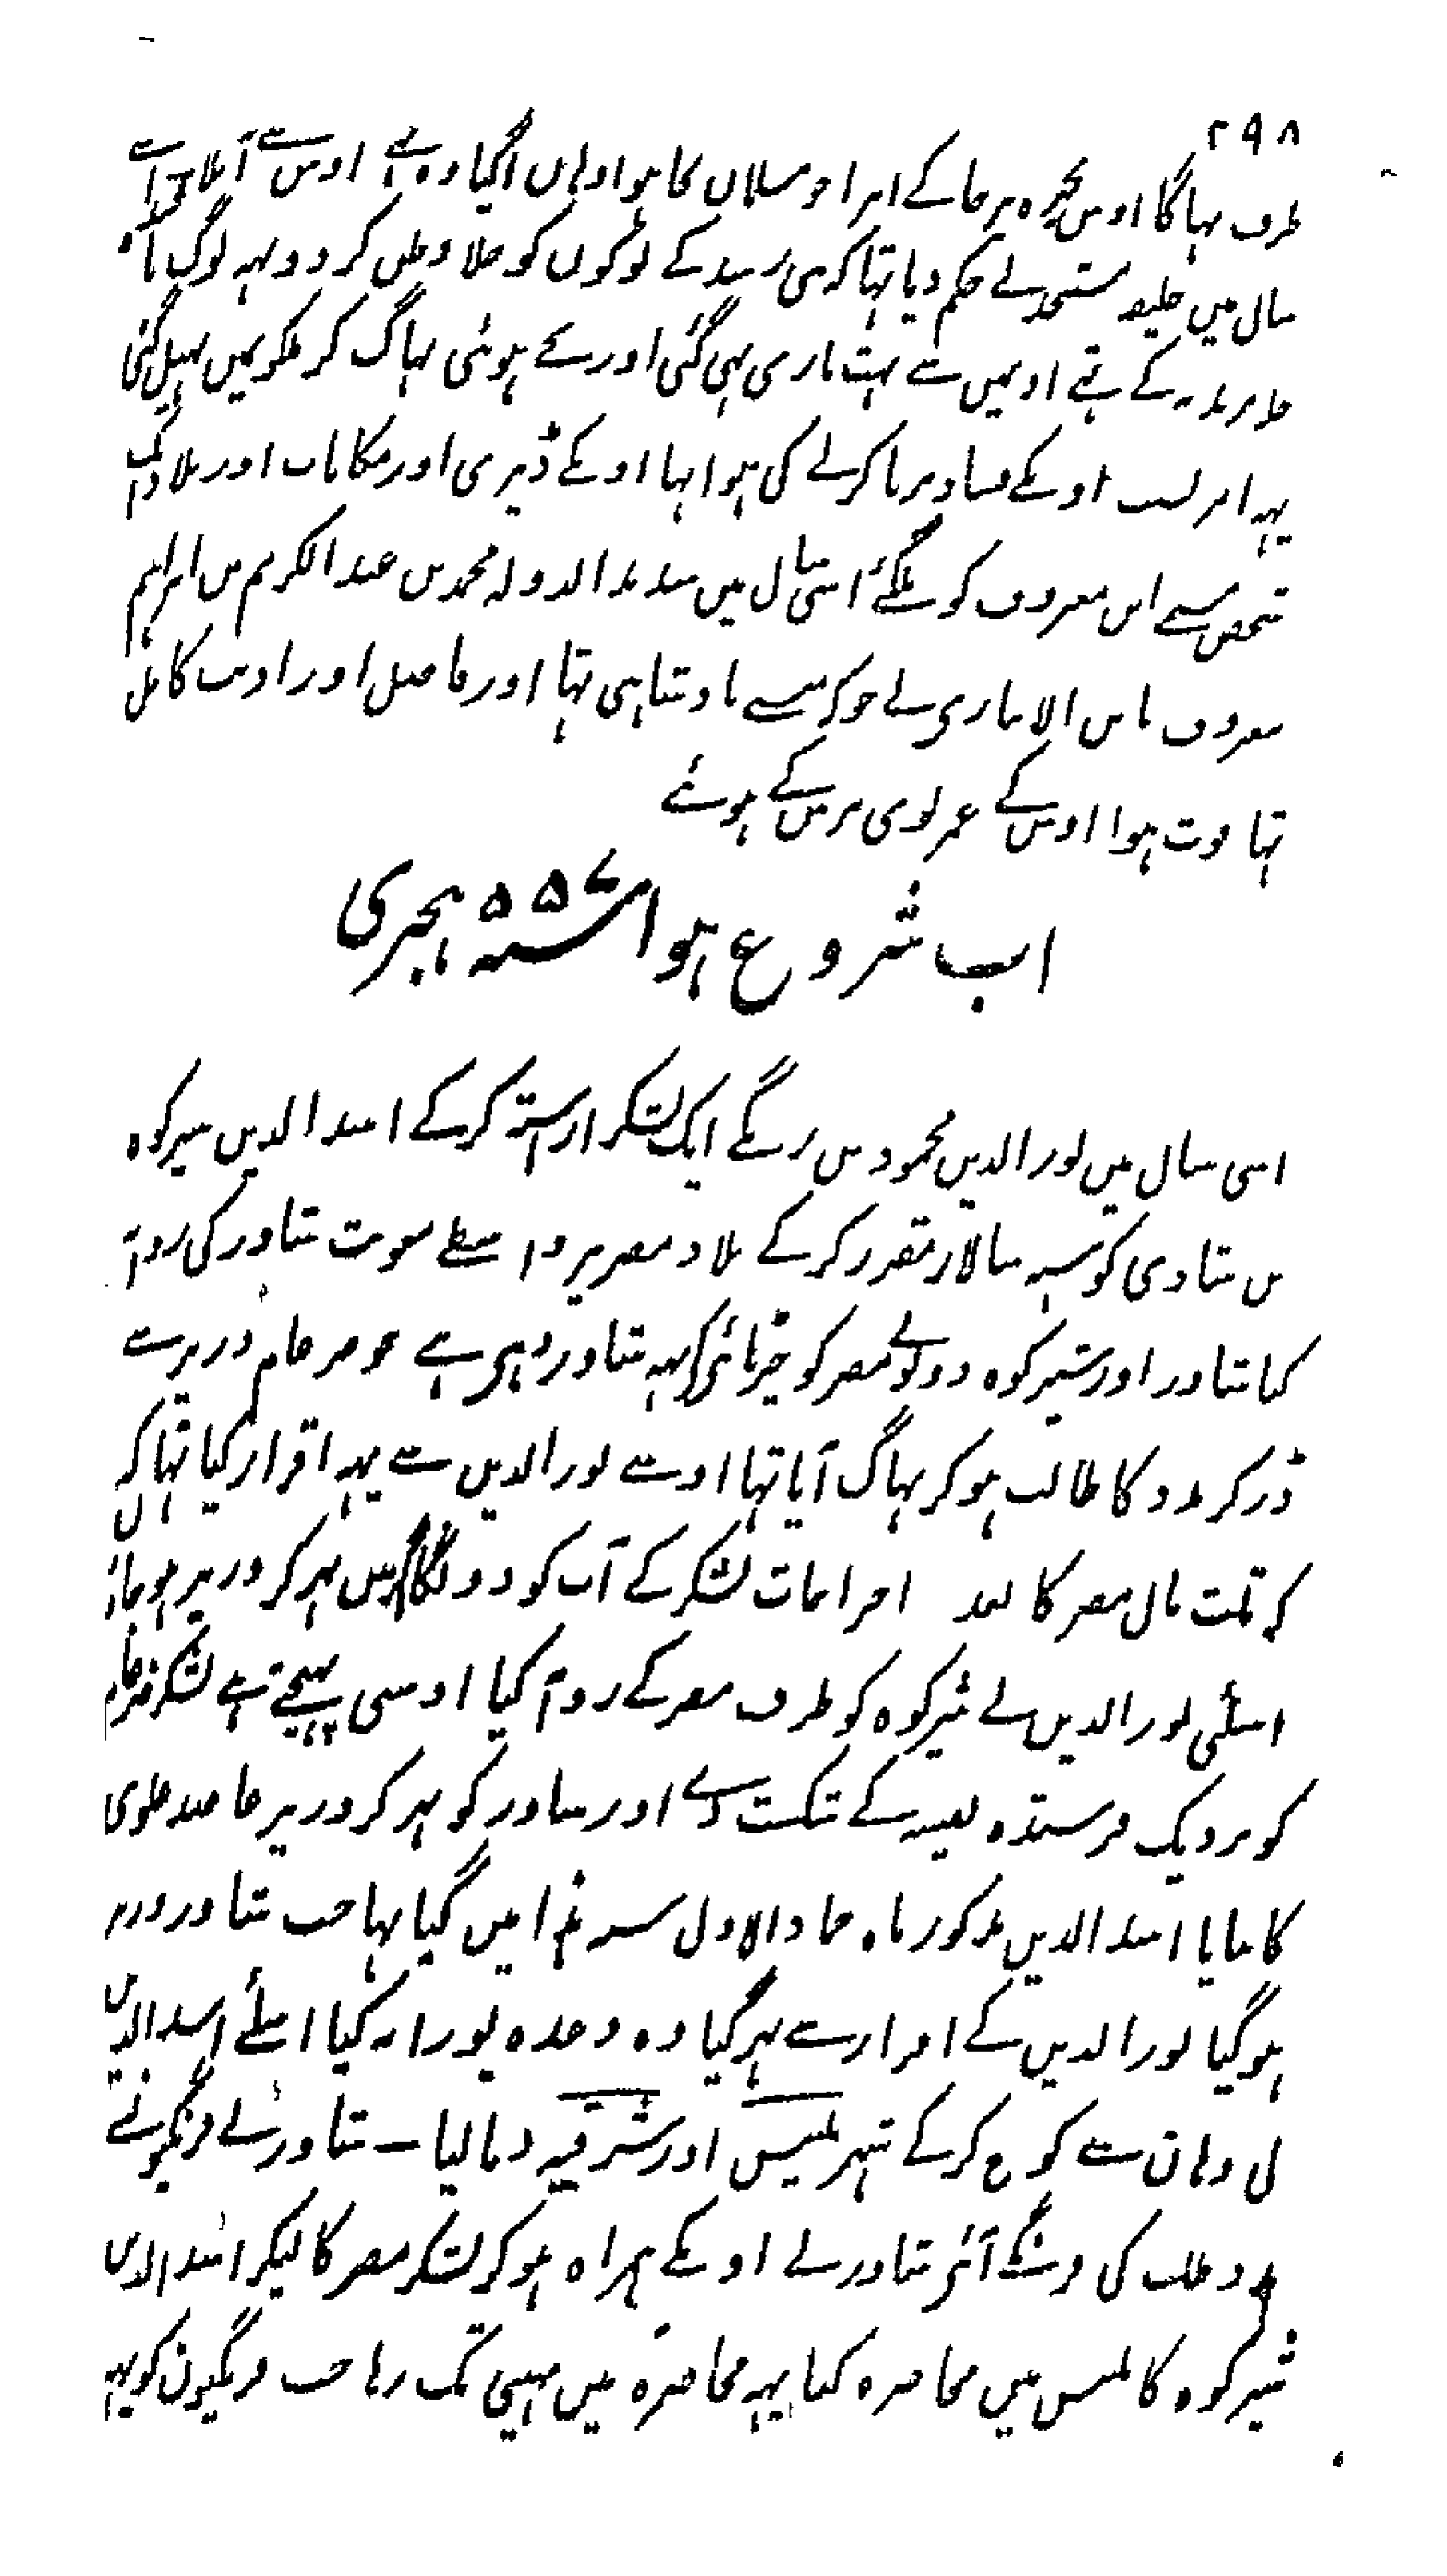 ۲۹۸
طرف بہاگا اوس بحیرہ پر جاکے اترا جو مسلمان کا ہوا وہان آگیا وہ بھی اوس سے آ ملا
سال میں خلیفہ مستنجد نے حکم دیا تہا کہ بنی اسد کے لوگوں کو جلا وطن کر دو یہہ لوگ
حلہ مزیدیہ کے تہے اونمیں سے بہت ماری بہی گئی اور بچے ہوئی بہاگ کر ملکونمیں پہیل گئی
یہہ امر بسبب اونکے فساد برپا کرنے کی ہوا تہا اونکے ڈیری اور مکانات اور بلاد ایک
شخص مسمے ابن معروف کو ملگئے اسی سال میں سدید الدولہ محمد بن عبد الکریم بن ابراہیم
معروف بابن الانباری نے جو کہ منشے بادشاہی تہا اور فاضل اور ادیب کامل
تہا فوت ہوا اوس کے عمر نوی برس کے ہوئے
اب شروع ہوا سنہ ۵۵۹ ہجری
اسی سال میں نور الدین محمود بن زنگے ایک لشکر ارستہ کرکے اسد الدین شیرکوہ
بن شادی کو سپہ سالار مقرر کر کے بلاد مصر پر واسطے معونت شاور کی روانہ
کیا شاور اور شیر کوہ دونوں نے مصر کو یہہ شاور وہی ہے جو ضرغام وزیر سے
ڈر کر مدد کا طالب ہو کر بہاگ آیا تہا اوسے نور الدین سے یہہ اقرار کیا تہا کہ
کہ ثلث مال مصر کا بعد اخراجات لشکر کے آپ کو دونگا اگر میں پہر کر وزیر ہو جاؤں
اسلئی نور الدین نے شیرکوہ کو طرف مصر کے روانہ کیا اوسی پہنچتے ہے لشکر ضرغام
کو نزدیک کے شکست دے اور شاور کو پہر کر وزیر عاضد علوی
کا بنایا اسد الدین مذکور ماہ جماد الاول سنہ ہذا میں گیا تہا جب شاور وزیر
ہو گیا نور الدین کے اقرار سے پہر گیا وہ وعدہ پورا نہ کیا اسلئے اسد الدین
نے وہان سے کوچ کر کے شہر بلبیس اور شرقیہ دبا لیا – شاور نے فرنگیونسے
مدد طلب کی فرنگے آئی شاور نے اونکے ہمراہ ہو کر لشکر مصر کا لیکر اسد الدین
شیر کوہ کا بلبیس میں محاصرہ کیا یہہ محاصرہ تین مہینی تک رہا جب فرنگیون کو یہہ